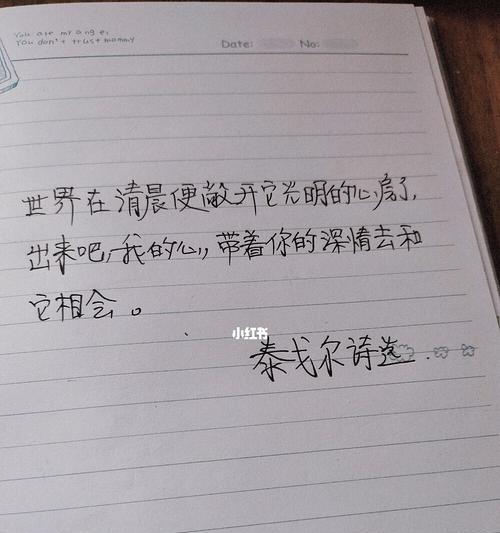 You are my angel
You don't trust mommy
Date: No:
世界在清晨便敞开它光明的心房了,
出来吧,我的心,带着你的深情去和
它相会。
小红书
泰戈尔诗选